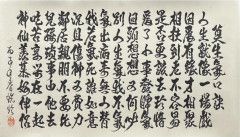 莫生氣口訣
人生就像一場戲
因為有緣才相聚
相扶到老不容易
是否更該去珍惜
為了小事發脾氣
回頭想想又何必
別人生氣我不氣
氣出病來無人替
我若氣死誰如意
況且傷神又費力
鄰居親朋不要比
兒孫瑣事由他去
吃苦享樂在一起
神仙羨慕好伴侶
丙子年